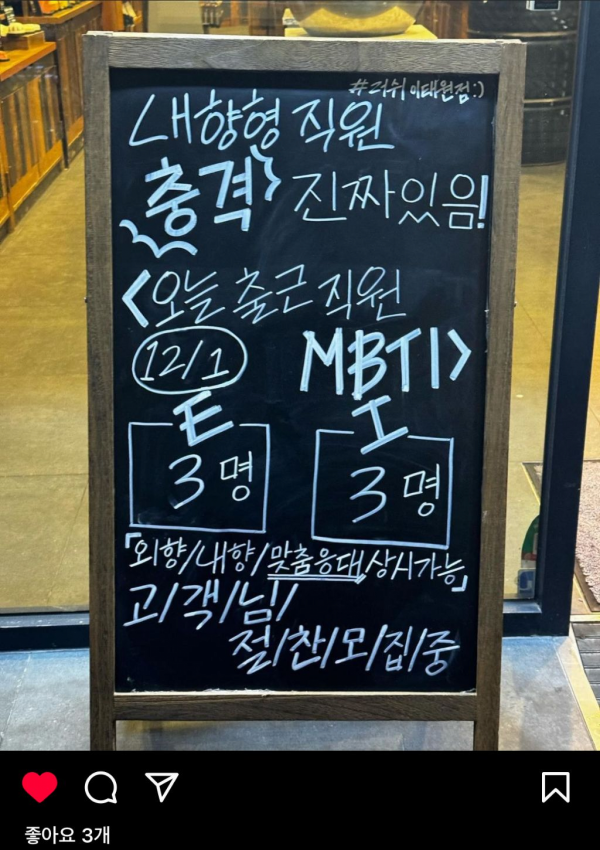 #러쉬 이태원점:)
내향형 직원
충격 진짜있음!
<오늘 출근 직원
12/1 MBTI>
E I
3명 3명
「외향/내향/맞춤응대상시가능」
고/객/님/
절/찬/모/집/중
좋아요 3개